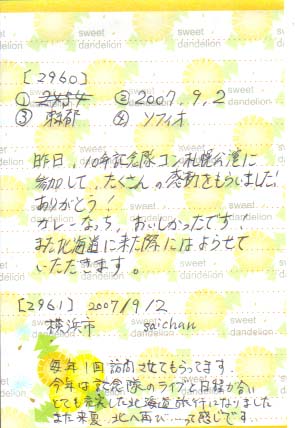 sweet dandelion
[2960]
① 2454 ② 2007.9.2
③ 京都 ④ ソフィオ
昨日、10年記念隊コン札幌公演に
参加して、たくさんの感動をもらいました!
ありがとう!
カレーなっち、おいしかったです!
また北海道に来た際にはよらせて
いただきます。
[2961] 2007/9/2
横浜市 saichan
毎年1回訪問させてもらってます。
今年は記念隊のライブと日程が合い
とても充実した北海道旅行になりました
また来夏、北へ再び…って感じです。